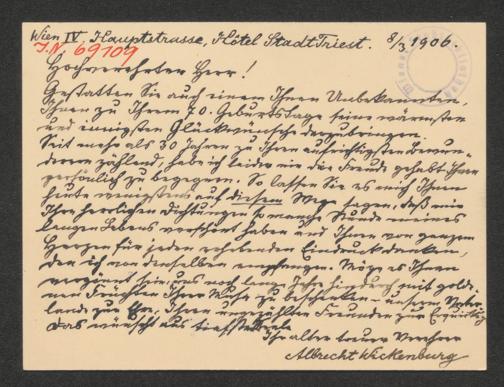 Wien IV. Hauptstrasse, Hôtel Stadt Triest. 8/3 1906.
J.N. 69109
Hochverehrter Herr!
Gestatten Sie auch einem Ihnen Unbekannten,
Ihnen zu Ihrem 70. Geburtstage seine wärmsten
und innigsten Glückwünsche darzubringen.
Seit mehr als 30 Jahren zu Ihren aufrichtigsten Bewun-
derern zählend, habe ich leider nie die Freude gehabt Ihnen
persönlich zu begegnen. So lassen Sie es mich Ihnen
heute wenigstens auf diesem Wege sagen, daß mir
Ihre herrlichen Dichtungen so manche Stunde meines
langen Lebens verschönt haben und Ihnen von ganzem
Herzen für jeden erhebenden Eindruck danken,
den ich von denselben empfangen. Möge es Ihnen
vergönnt sein, uns noch lange Jahre hindurch mit golde-
nen Früchten Ihrer Muse zu beschenken - unserem Vater-
lande zur Ehr, Ihren unzähligen Freunden zur Erquickung
Das wünscht aus tiefster Seele
Ihr alter treuer Verehrer
Albrecht Wickenburg